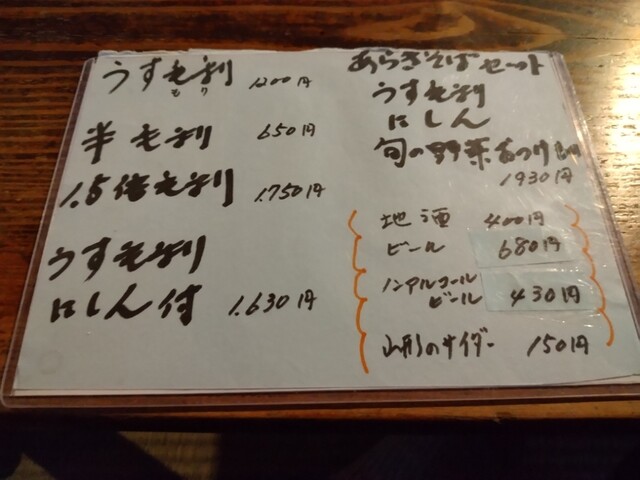 うす毛利 1200円
もり
半毛利 650円
1.5倍毛利 1.750円
うす毛利
にしん付 1.630円
あらきそばセット
うす毛利
にしん
旬の野菜おつけ
1930円
地酒 400円
ビール 680円
ノンアルコール
ビール 430円
山形のサイダー 150円